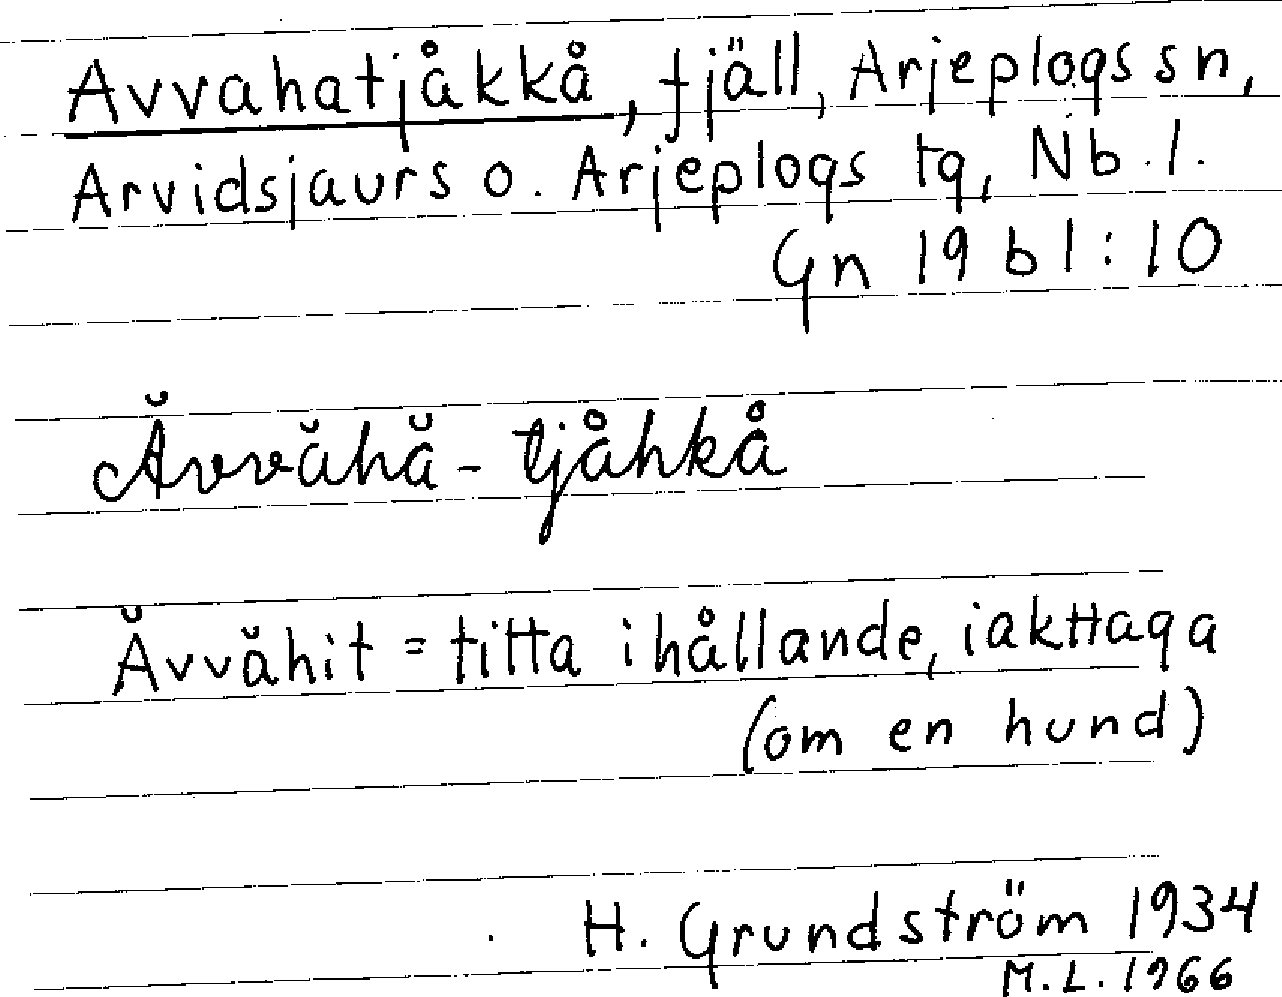 Avvahatjåkkå, fjäll, Arjeplogs sn,
Arvidsjaurs o. Arjeplogs tg, Nb. l.
Gn 19 b l : 10
Ăvvăhă - tjåhkå
Ăvvăhit = titta ihållande, iakttaga
(om en hund)
H. Grundström 1934
M. L. 1966